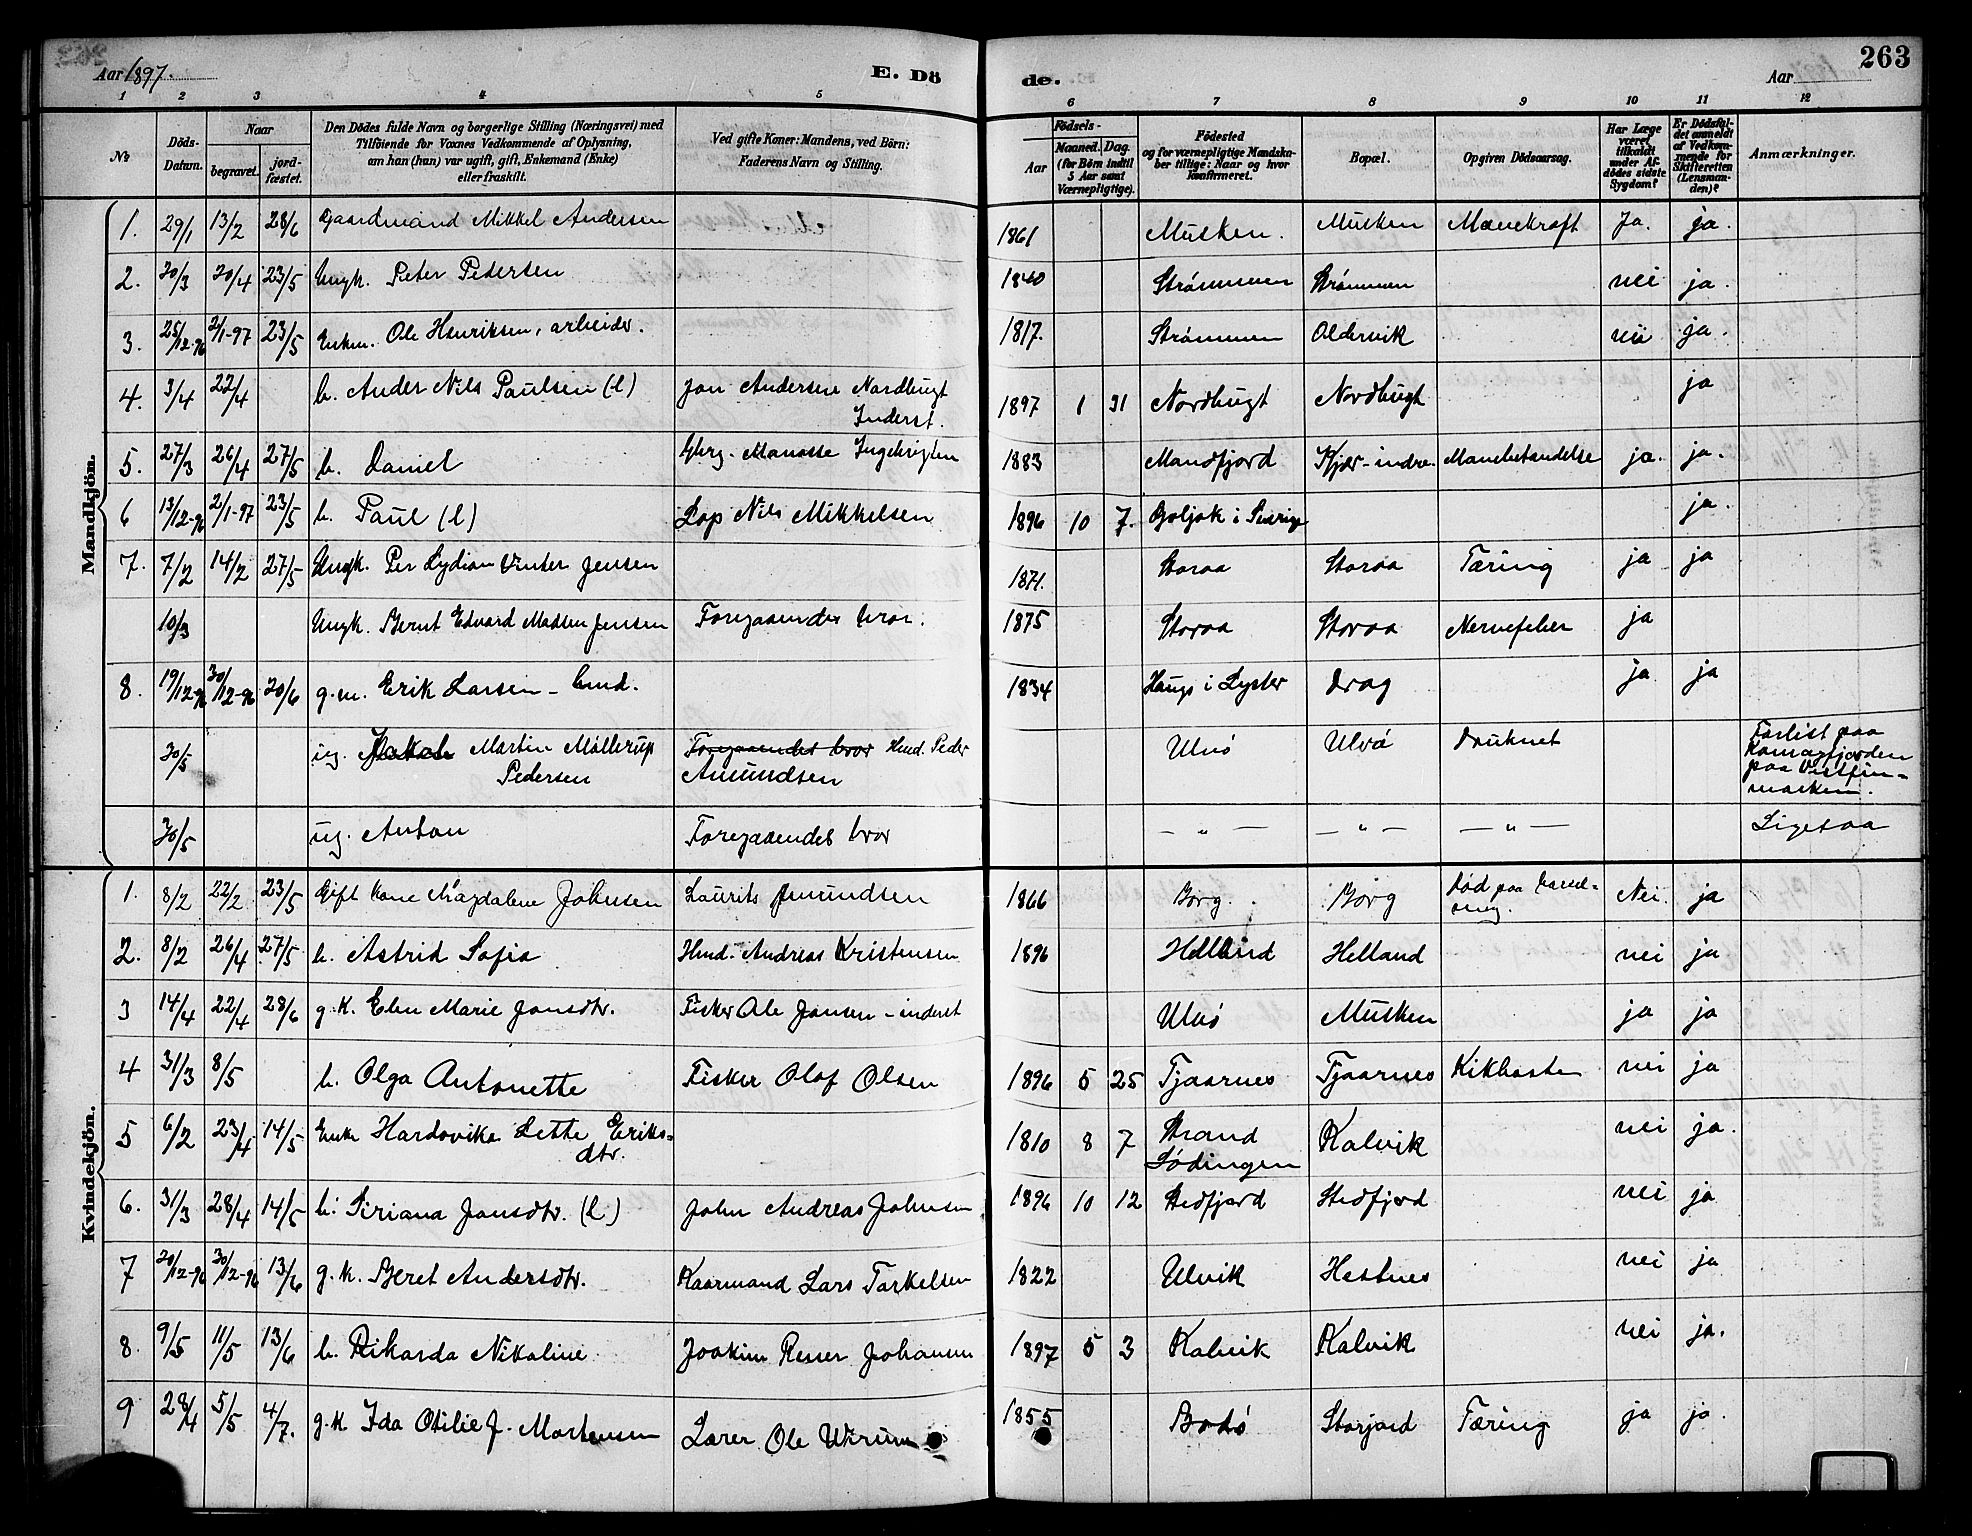 263
Aar 1897.
E. Dö
de.
Aar
1 2 3 4 5 6 7 8 9 10 11 12
№
Döds-
Datum.
Naar
begravet.
jord-
fæstet.
Den Dödes fulde Navn og borgerlige Stilling (Næringsvei) med
Tilföiende for Voxnes Vedkommende af Oplysning,
om han (hun) var ugift, gift, Enkemand (Enke)
eller fraskilt.
Ved gifte Koner: Mandens, ved Börn:
Faderens Navn og Stilling.
Födsels-
Aar
Maaned. Dag.
(for Börn indtil
5 Aar samt
Værnepligtige).
Födested
og for værnepligtige Mandska-
ber tillige: Naar og hvor
konfirmeret.
Bopæl.
Opgiven Dödsaarsag.
Har Læge
været
tilkaldt
under Af-
dödes sidste
Sygdom?
Er Dödsfal-
det anmeldt
af Vedkom-
mende for
Skifteretten
(Lensman-
den)?
Anmærkninger.
Mandkjön.
1. 29/1 13/2 28/6 Gaardmand Mikkel Andersen 1861 Musken. Musken Mavekræft Ja. ja.
2. 20/3 20/4 23/5 Ungk. Peter Pedersen 1840 Strømmen Strømmen nei ja.
3. 25/12-96 2/1-97 23/5 Enkm. Ole Henriksen, arbeider. 1817. Strømmen Oldervik nei ja.
4. 3/4 22/4 b. Ander Nils Paulsen (l) Jon Andersen Nordbugt 1897 1 31 Nordbugt Nordbugt ja
Inderst.
5. 27/3 26/4 27/5 b. Daniel Manasse Ingebrigtsen 1883 Mandfjord Kjær-indre. ja. ja.
6 13/12-96 2/1-97 23/5 b. Paul (l) Lap Nils Mikkelsen 1896 10 7. i Sverige ja.
7. 7/2 14/2 27/5 Ungk. Per Lydian Winter Jensen 1871. Storaa Storaa Tæring ja ja
10/3 Ungk. Bernt Edvard Madsen Jensen Foregaaendes bror. 1875 Storaa Storaa Nervefeber ja
8. 19/12-96 30/12-96 20/6 g.m. Erik Larsen - hmd. 1834 Haugs i Lyster Drag ja ja
30/5 ug. Jakob Martin Møllerup Foregaaendes bror Hmd. Peder Ulvø Ulvø Druknet Forlist paa
Pedersen Amundsen Komagfjorden
paa Vestfin-
marken.
30/5 ug. Anton Foregaaendes bror — „ — — „ — — „ — Ligesaa
Kvindekjön.
1. 8/2 22/2 23/5 Gift kone Magdalene Johnsen Laurits Amundsen 1866 Borg. Borg Død paa barsel- Nei. ja
seng.
2. 8/2 26/4 27/5 b. Astrid Sofia Hmd. Andreas Kristensen 1896 Helland Helland nei ja
3 14/4 22/4 28/6 g.k. Elen Marie Jonsdtr. Fisker Ole Jonsen - inderst Ulvø Musken ja ja
4 31/3 8/5 b. Olga Antonette Fisker Olof Olsen 1896 5 25 Tjaarnes Tjaarnes Kikhoste nei ja
5 6/2 23/4 14/5 Enke Hardovika Lette Eriks- 1810 8 7 Strand Kalvik nei ja.
dtr. Lødingen
6. 31/3 28/4 14/5 b. Siriana Jonsdtr. (l) John Andreas Johnsen 1896 10 12 Stedfjord Stedfjord nei ja
7 20/12-96 30/12-96 13/6 g.k. Beret Andersdtr. Kaarmand Lars Torkelsen 1822 Ulvik Hestnes nei ja
8. 9/5 11/5 13/6 b. Rikarda Nikoline Joakim Johansen 1897 5 3 Kalvik Kalvik nei ja.
9 28/4 5/5 4/7. g.k Ida Otilie J. Mortensen Lærer Ole 1855 Bodø Storjord Tæring ja ja.